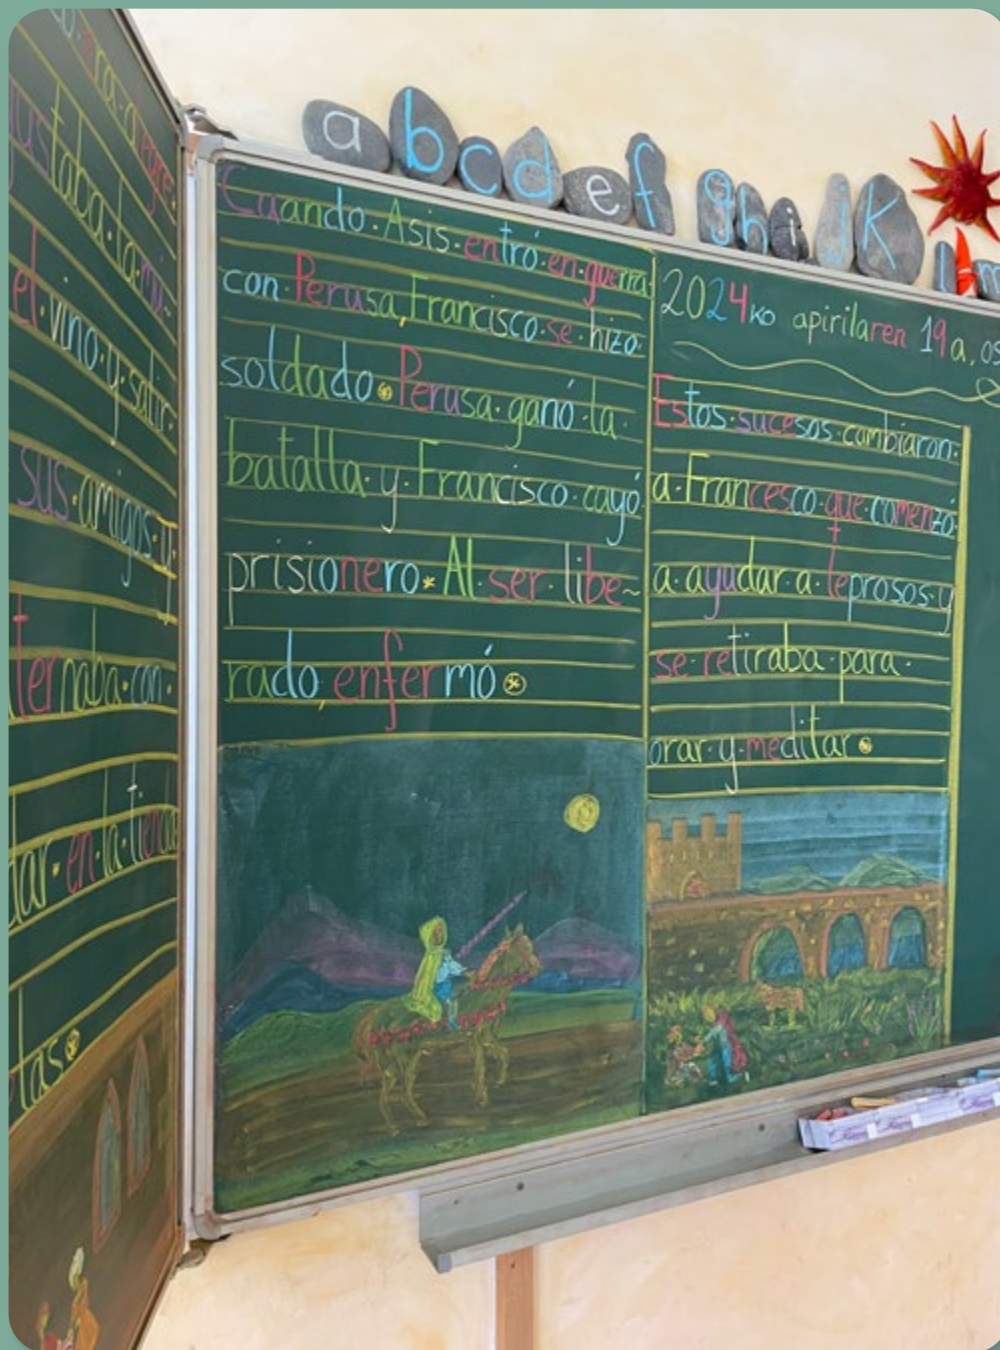 a b c d e f g h i j K l m
alegre
gustaba la mú-
el vino y salir
sus amigos y
ternaba con
en la tienda
Cuando Asis entró en guerra
con Perusa, Francisco se hizo
soldado. Perusa ganó la
batalla y Francisco cayó
prisionero. Al ser libe~
rado, enfermó.
2024ko apirilaren 19a, os
Estos sucesos cambiaron
a Francesco que comenzó
a ayudar a leprosos y
se retiraba para
orar y meditar.